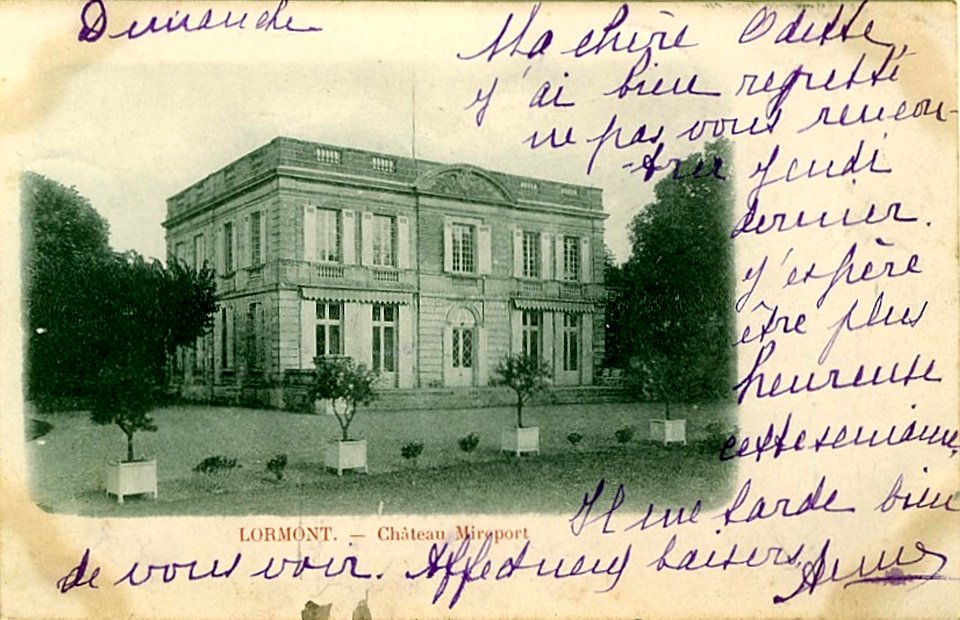 Dimanche
Ma chère Odette
J'ai bien regretté
ne pas vous rencon-
-trer Jeudi
dernier.
J'espère
être plus
heureuse
cette semaine.
Il me tarde bien
LORMONT. — Château Mireport
de vous voir. Affectueux baisers,